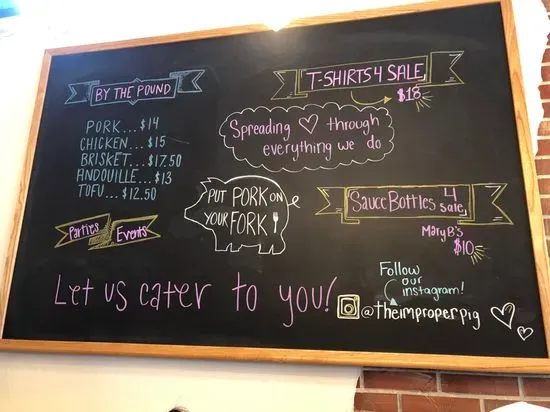 BY THE POUND
PORK...$14
CHICKEN...$15
BRISKET...$17.50
ANDOUILLE...$13
TOFU...$12.50
Parties & Events
T-SHIRTS 4 SALE
$18
Spreading ♡ through
everything we do
PUT PORK ON
YOUR FORK
Sauce Bottles 4
sale
Mary B's
$10
Let us cater to you!
Follow
our
instagram!
@theimproperpig